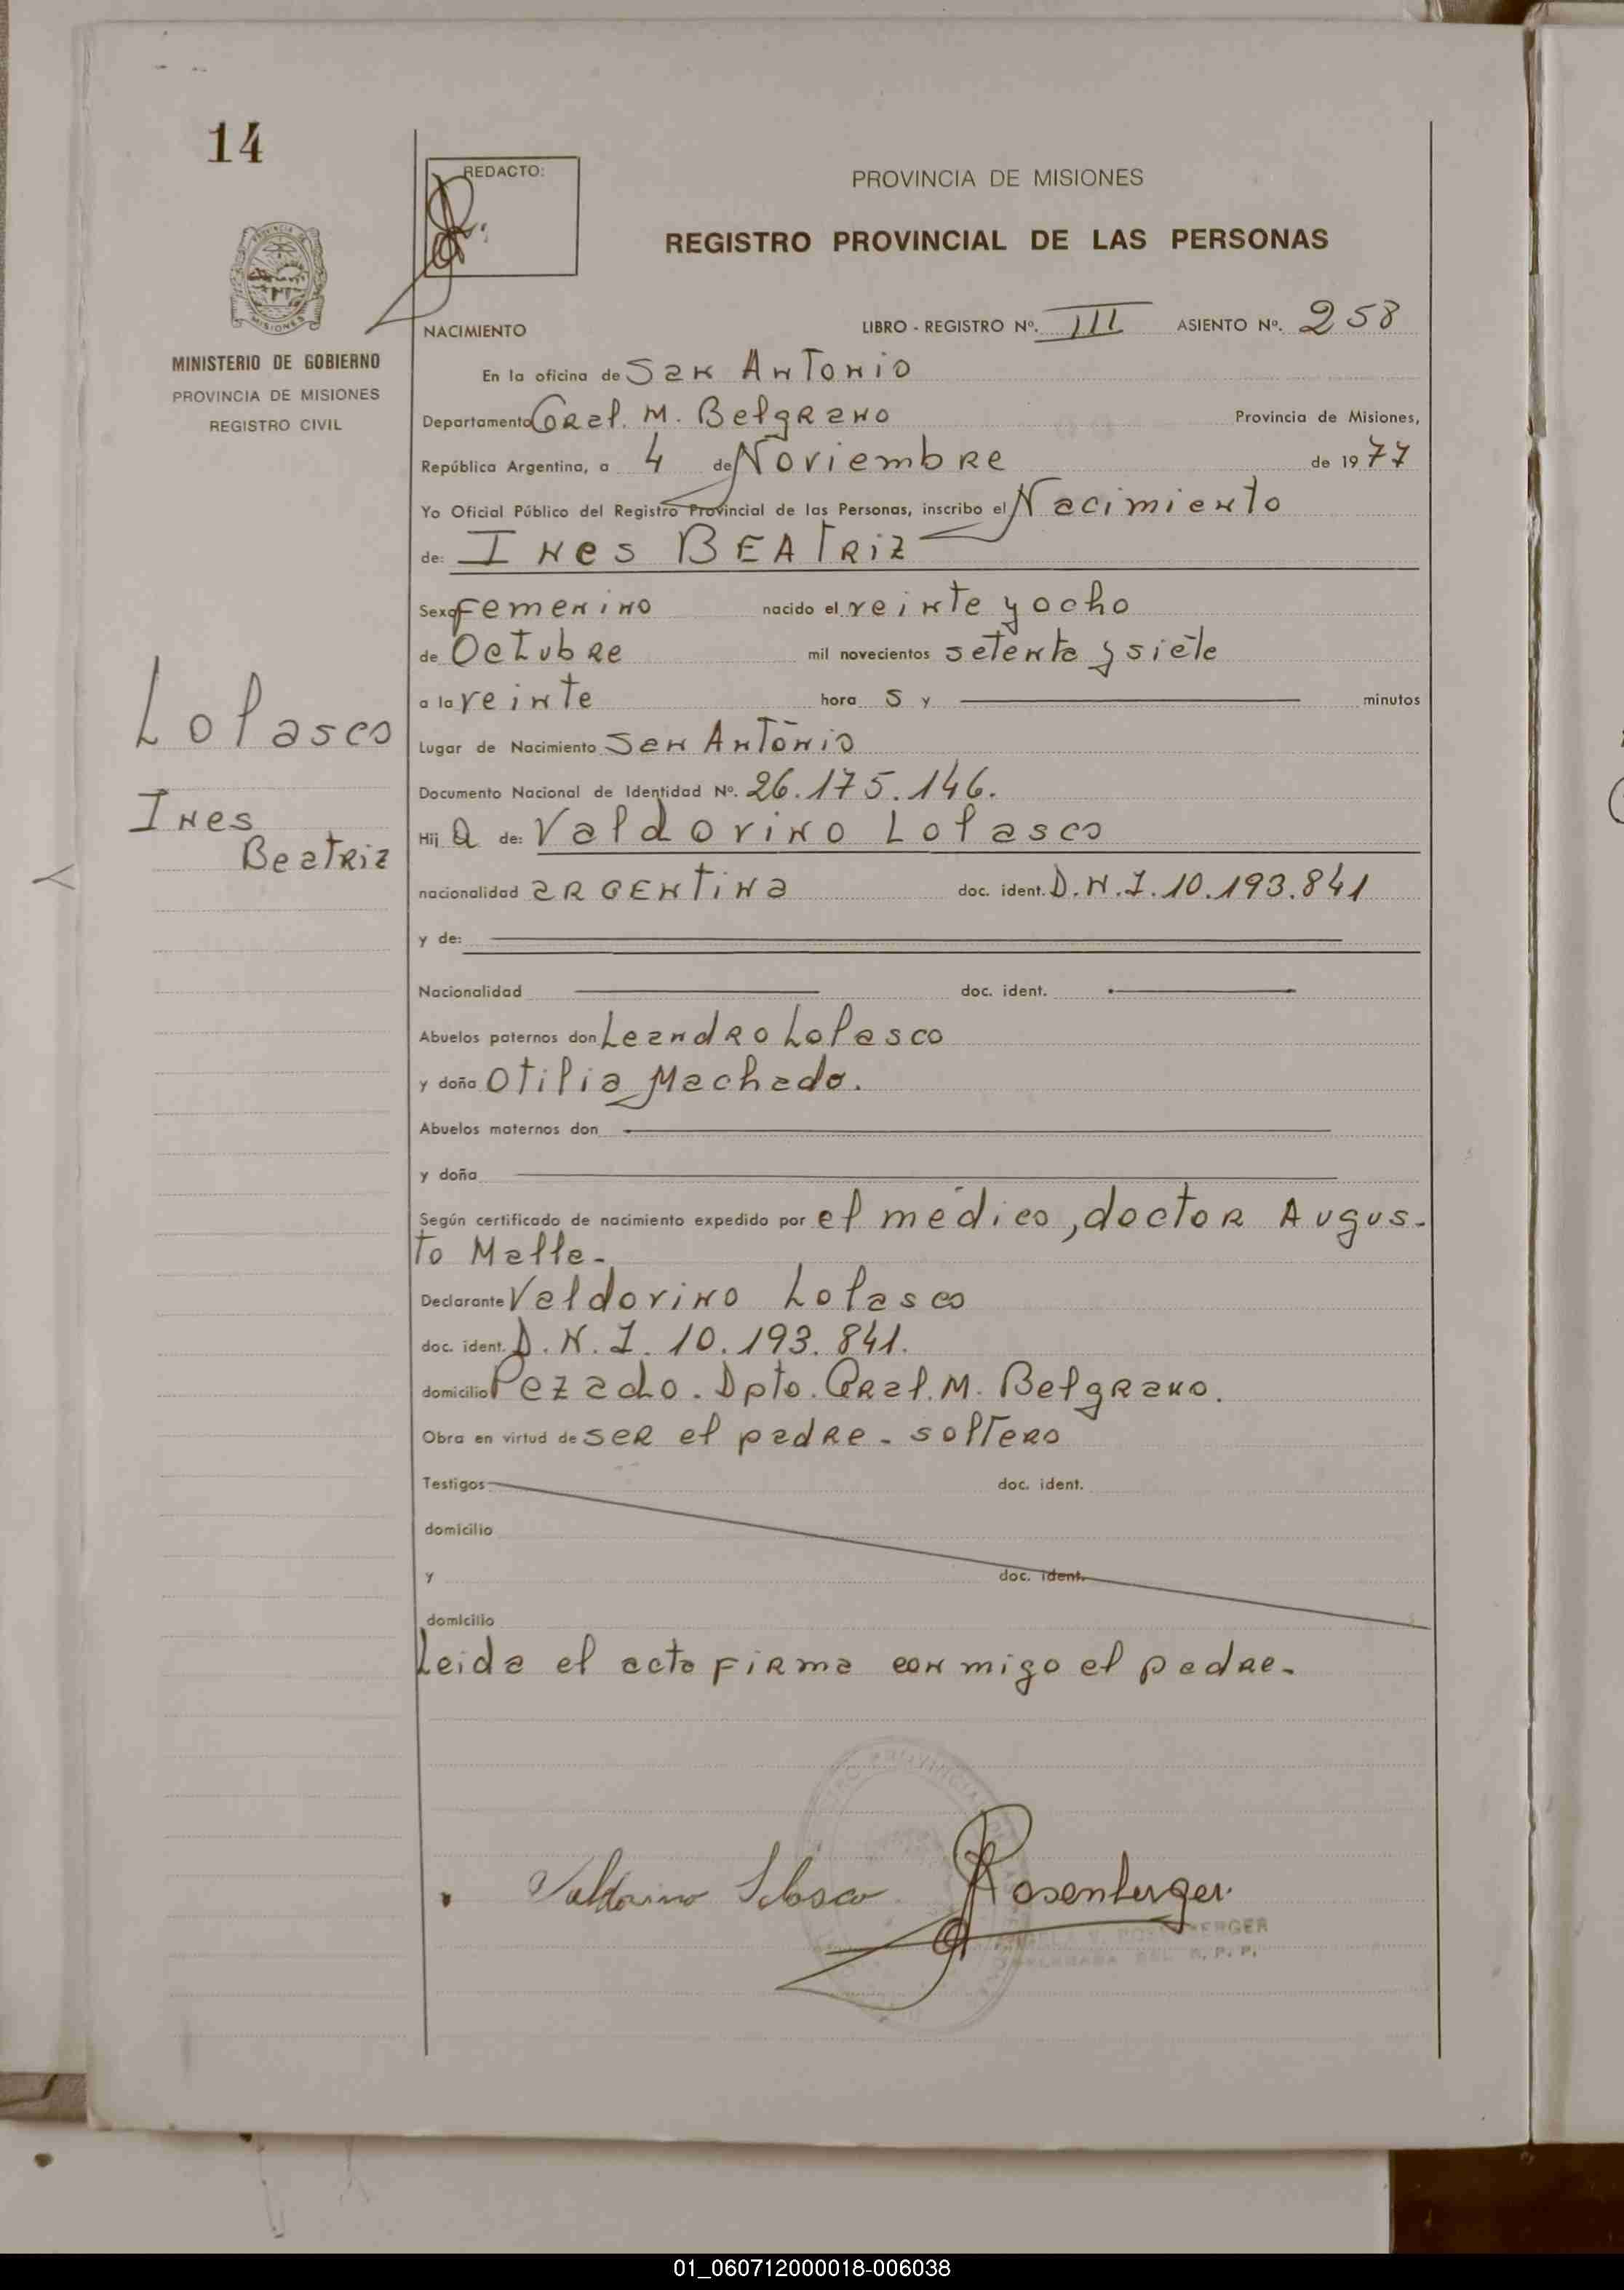 14
REDACTO:
PROVINCIA DE MISIONES
REGISTRO PROVINCIAL DE LAS PERSONAS
MISIONES
MINISTERIO DE GOBIERNO
PROVINCIA DE MISIONES
REGISTRO CIVIL
NACIMIENTO LIBRO - REGISTRO Nº. III ASIENTO Nº. 258
En la oficina de San Antonio
Departamento Gral. M. Belgrano Provincia de Misiones,
República Argentina, a 4 de Noviembre de 1977
Yo Oficial Público del Registro Provincial de las Personas, inscribo el Nacimiento
de: Ines BEATRiz
Sexo Femenino nacido el veinte y ocho
de Octubre mil novecientos setenta y siete
a la veinte hora s y minutos
Lolasco
Lugar de Nacimiento San Antonio
Documento Nacional de Identidad Nº. 26.175.146.
Ines
Beatriz
Hij a de: Valdovino Lolasco
nacionalidad argentina doc. ident. D.N.I. 10.193.841
y de:
Nacionalidad doc. ident.
Abuelos paternos don Leandro Lolasco
y doña Otilia Machado.
Abuelos maternos don
y doña
Según certificado de nacimiento expedido por el médico, doctor Augus-
to Malla-
Declarante Valdovino Lolasco
doc. ident. D.N.I. 10.193.841.
domicilio Pozado. Dpto. Gral. M. Belgrano.
Obra en virtud de ser el padre - soltero
Testigos doc. ident.
domicilio
y doc. ident.
domicilio
Leida el acta firma conmigo el padre-
Valdovino Lolasco Rosenberger
ROSENBERGER
DEL R. P. P.
01_060712000018-006038